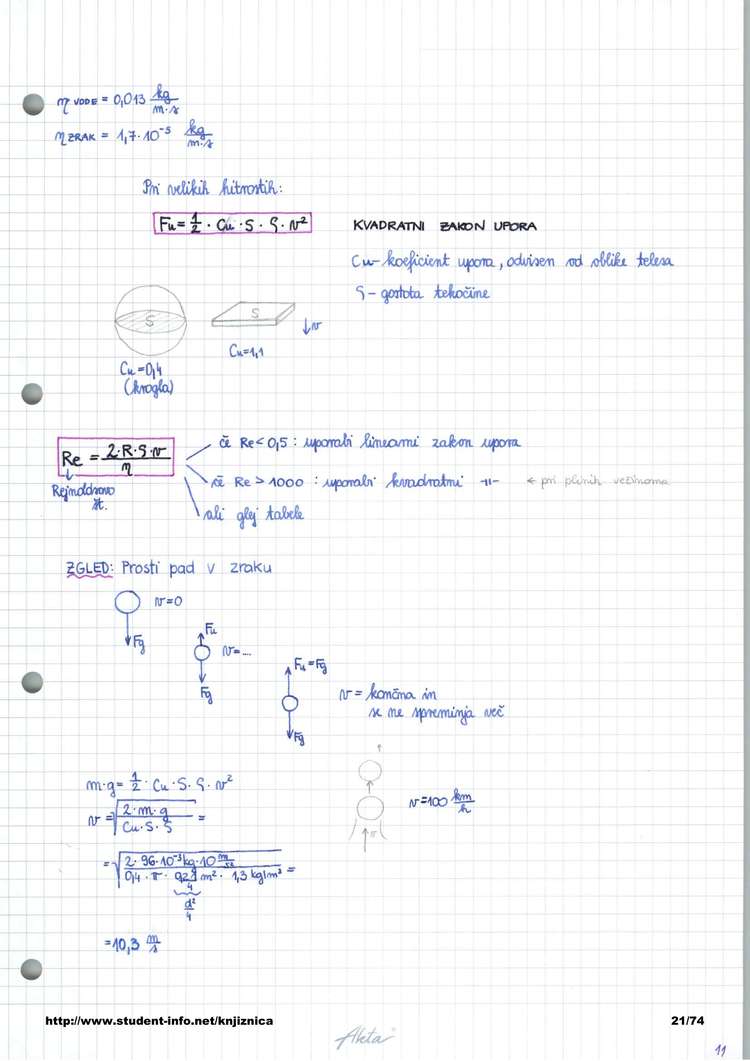 η VODE = 0,013 kg/m·s
η ZRAK = 1,7·10⁻⁵ kg/m·s
Pri velikih hitrostih:
Fu = 1/2 · Cu · S · ρ · v²
KVADRATNI ZAKON UPORA
Cu - koeficient upora, odvisen od oblike telesa
ρ - gostota tekočine
S
S
↓v
Cu=1,1
Cu=0,4
(krogla)
Re = 2·R·ρ·v/η
če Re < 0,5 : uporabi linearni zakon upora
če Re > 1000 : uporabi kvadratni -11- ← pri plinih večinoma
ali glej tabele
št.
ZGLED: Prosti pad v zraku
v=0
Fg
Fu
v=...
Fg
Fu = Fg
v = končna in
se ne spreminja več
Fg
m·g = 1/2 · Cu · S · ρ · v²
v = √(2·m·g/Cu·S·ρ) =
v
v=100 km/h
= √(2·96·10⁻³kg·10 m/s²/0,4·π· m²·1,3 kg/m³) =
d²/4
= 10,3 m/s
http://www.student-info.net/knjiznica
21/74
Akta
11